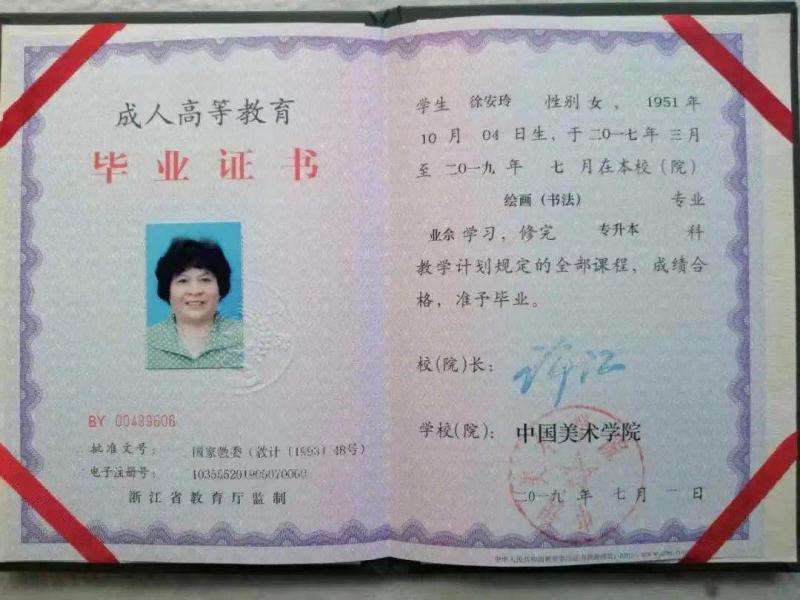 成人高等教育
毕业证书
BY 00489606
批准文号： 国家教委（教计（1993）48号）
电子注册号： 103555201905070060
浙江省教育厅监制
学生 徐安玲 性别 女 ，1951 年
10 月 04 日生，于二〇一七年 三月
至 二〇一九 年 七 月在本校（院）
绘画（书法） 专业
业余 学习，修完 专升本 科
教学计划规定的全部课程，成绩合
格，准予毕业。
校（院）长：
学校（院）： 中国美术学院
二〇一九 年 七 月 一 日